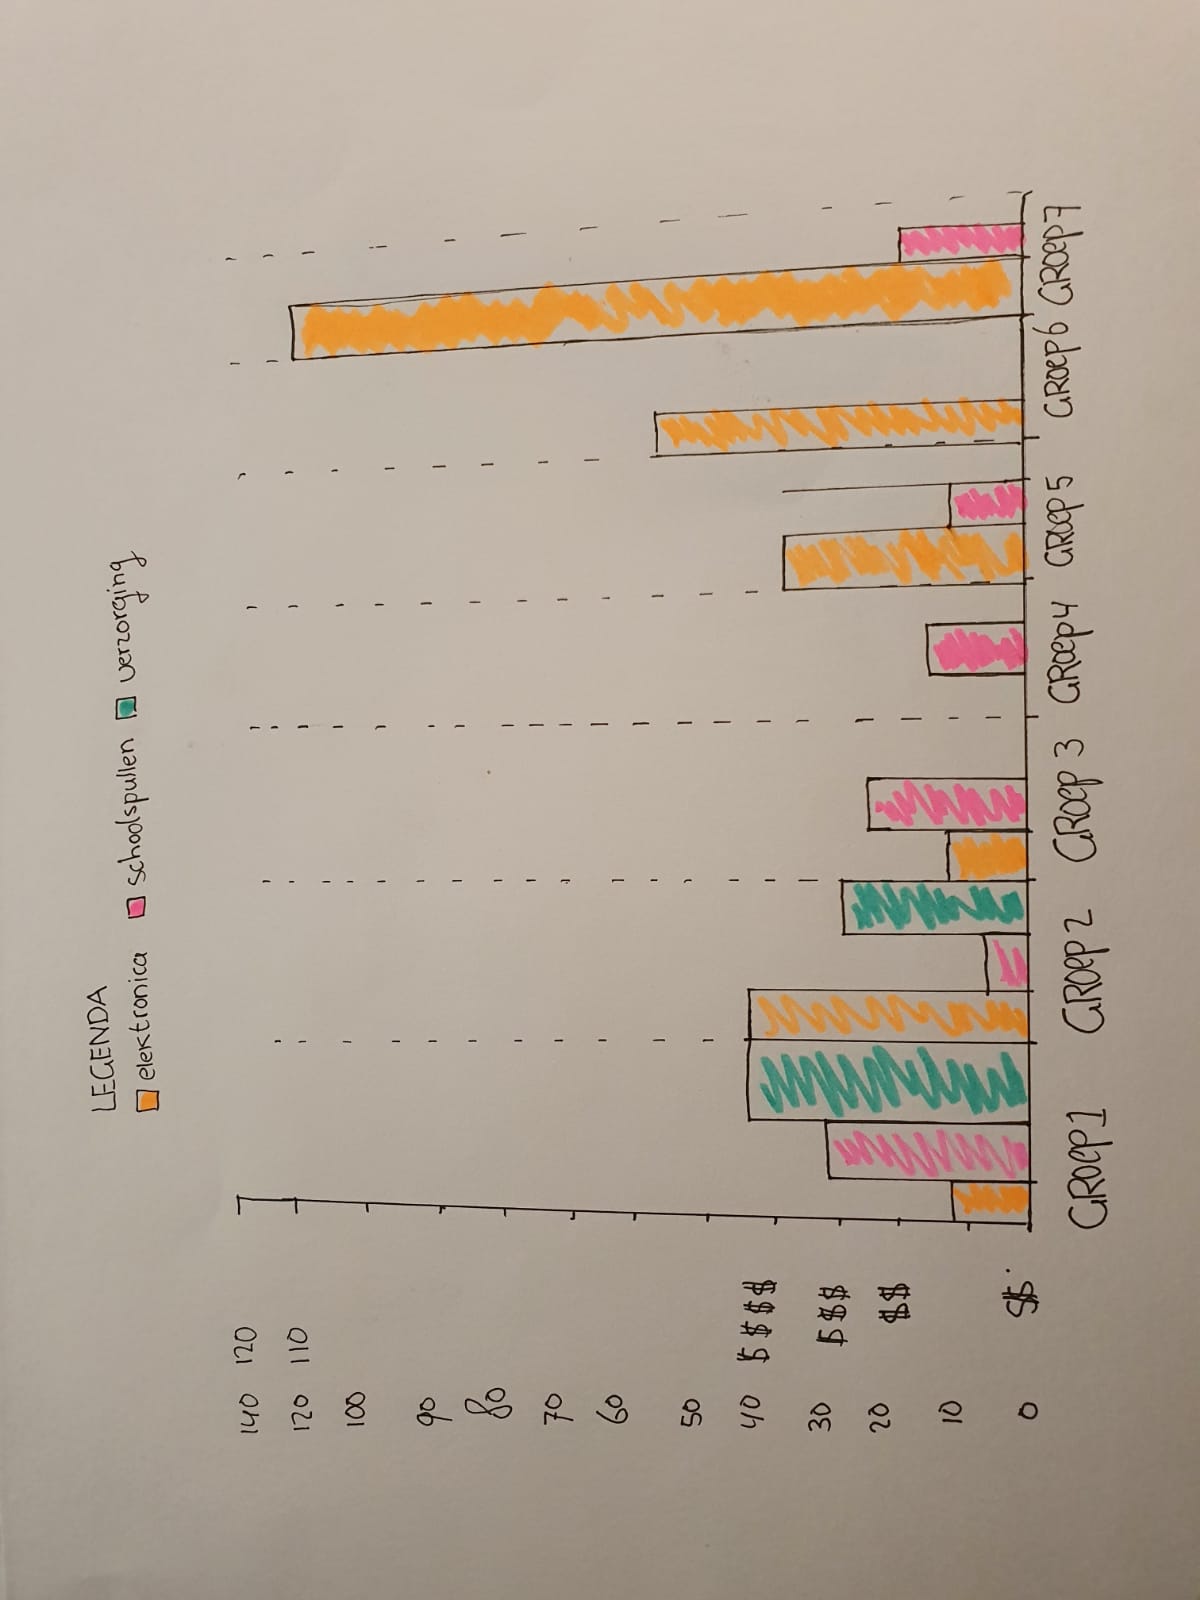 LEGENDA
elektronica schoolspullen verzorging
140 120
120 110
100
90
80
70
60
50
40 $$$$
30 $$$
20 $$
10
0 $
GROEP1 GROEP2 GROEP 3 GROEP4 GROEP5 GROEP6 GROEP7